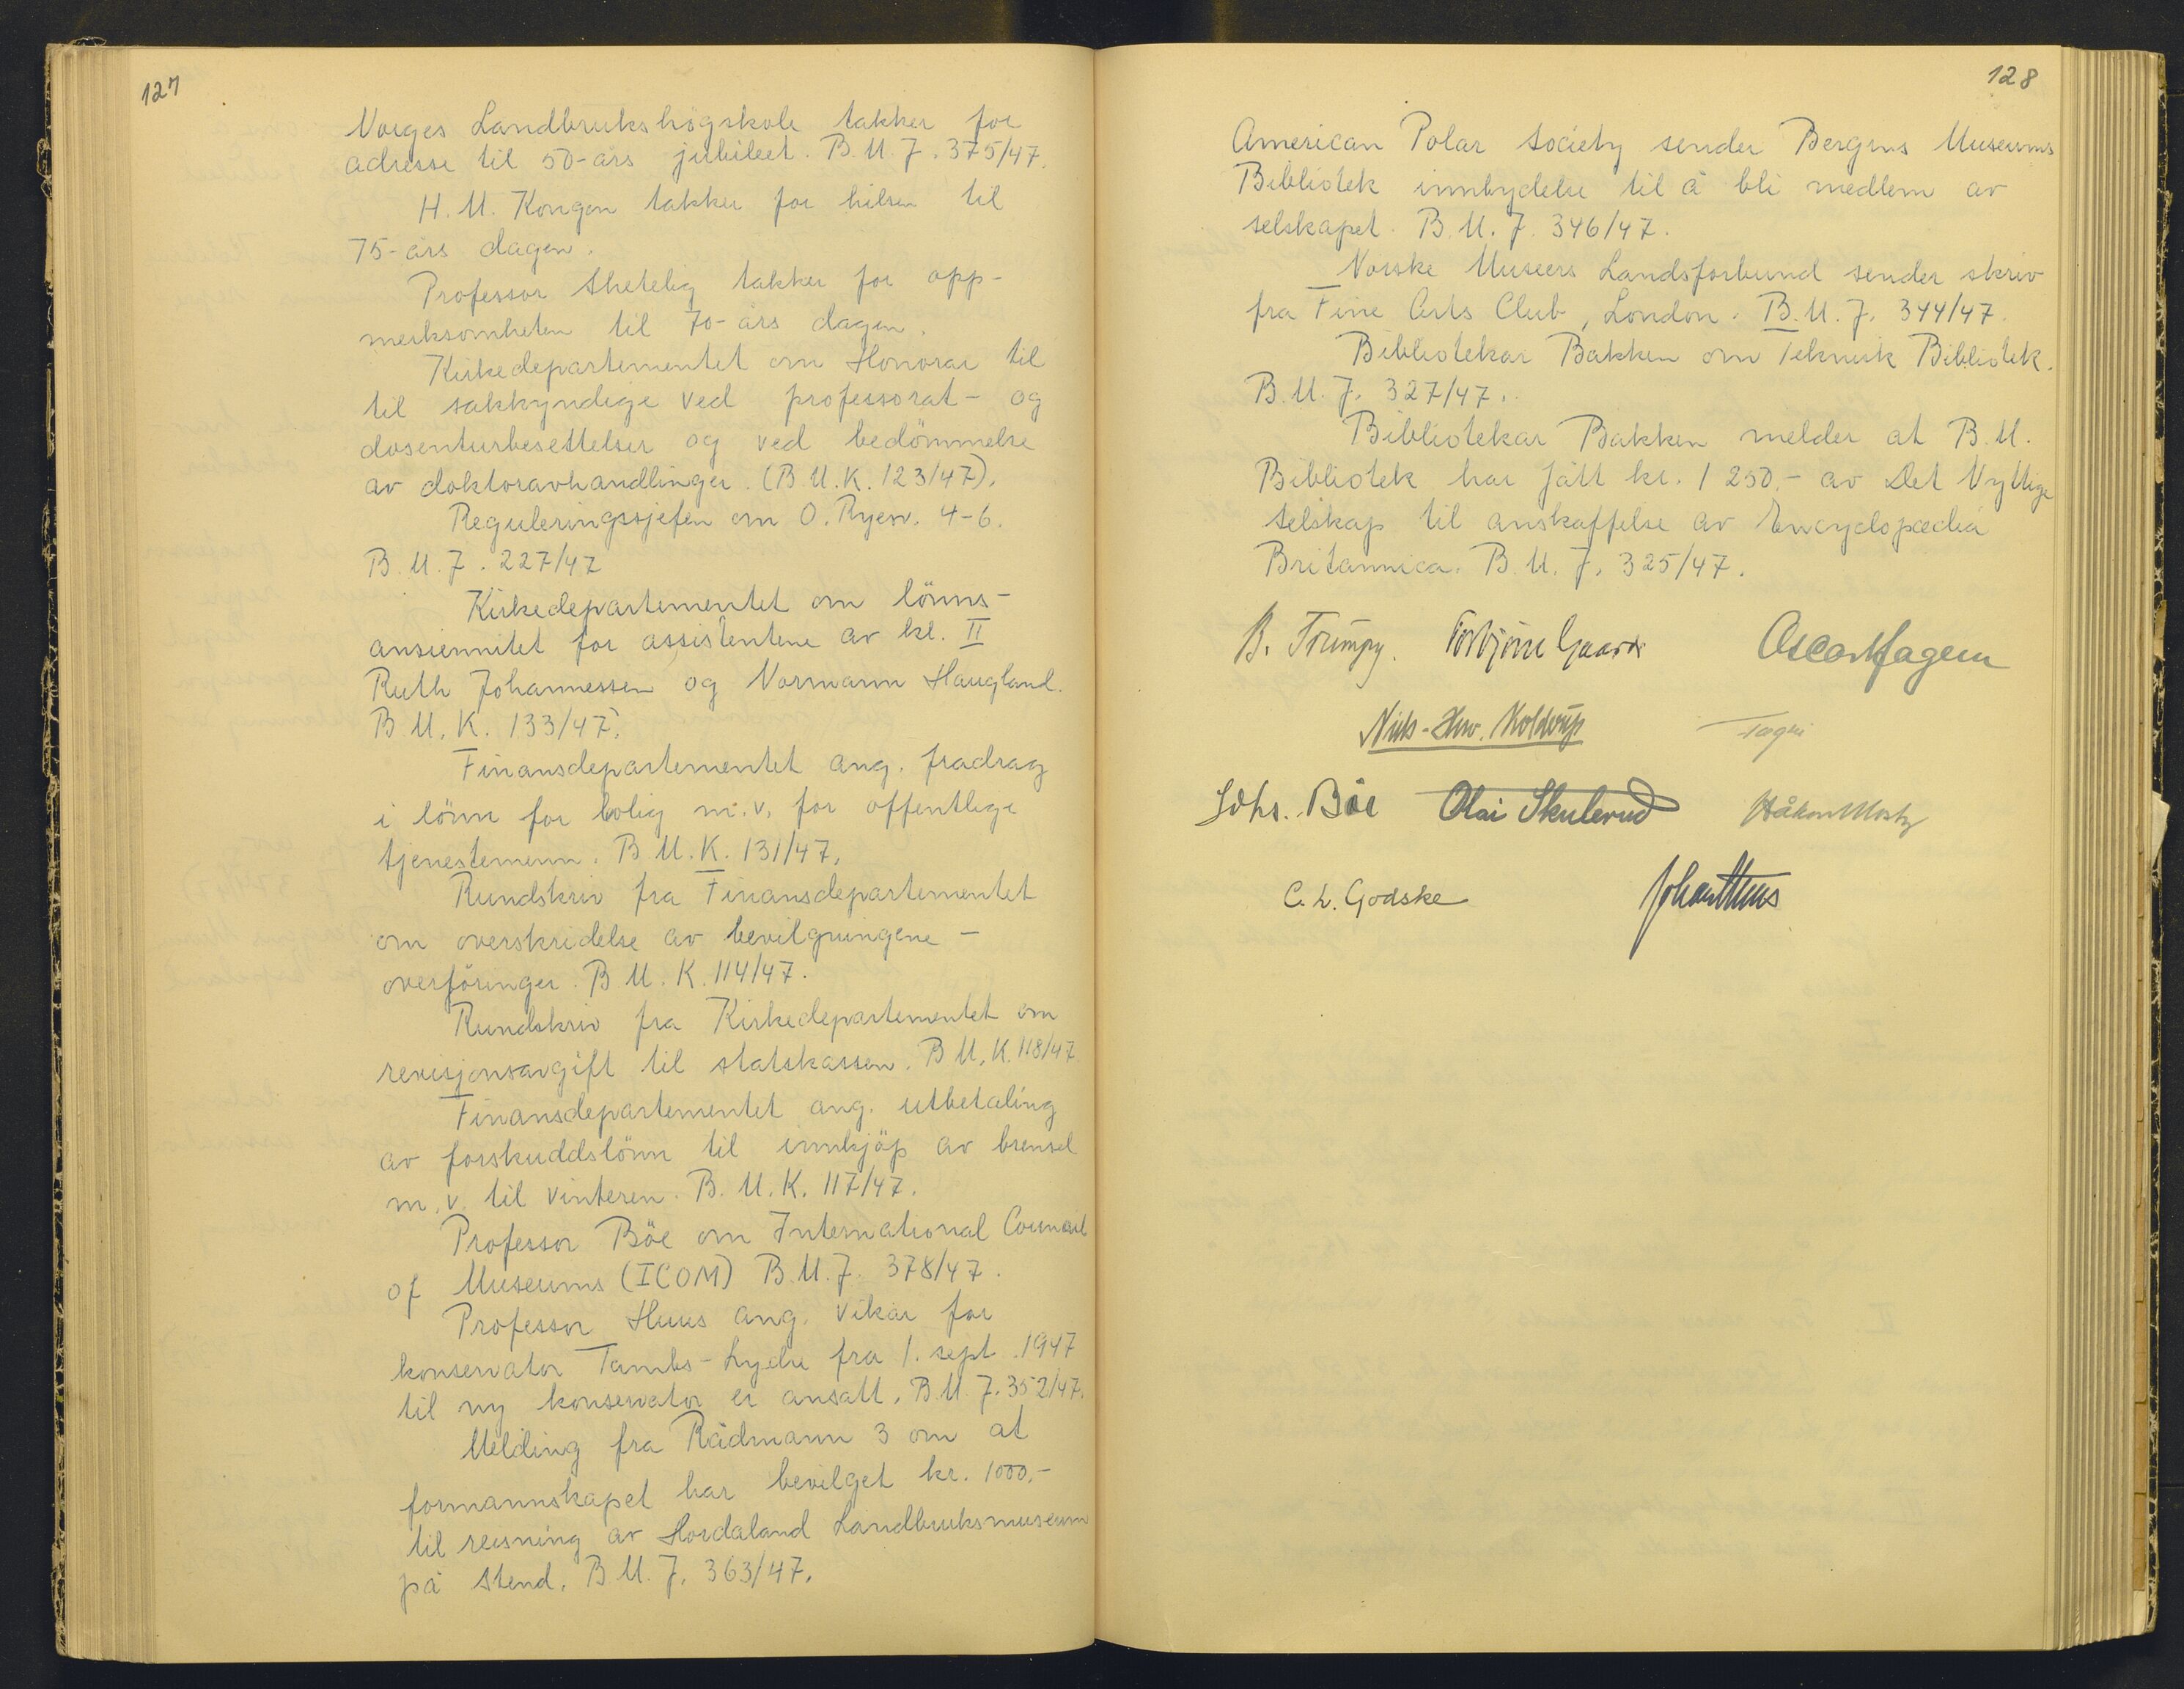 127
Norges Landbrukshögskole takker for
adresse til 50-års jubileet. B.M.J. 375/47.
H.M. Kongen takker for hilsen til
75-års dagen.
Professor Shetelig takker for opp-
merksomheten til 70-års dagen.
Kirkedepartementet om Honorar til
til sakkyndige ved professorat- og
dosenturbesettelser og ved bedömmelse
av doktoravhandlinger. (B.M.K. 123/47).
Reguleringssjefen om O. Ryesv. 4-6.
B.M.J. 227/47
Kirkedepartementet om lönns-
ansiennitet for assistentene av kl. II
Ruth Johannessen og Normann Haugland.
B.M.K. 133/47.
Finansdepartementet ang. fradrag
i lönn for bolig m.v. for offentlige
tjenestemenn. B.M.K. 131/47.
Rundskriv fra Finansdepartementet
om overskridelse av bevilgningene -
overföringer. B.M.K. 114/47.
Rundskriv fra Kirkedepartementet om
revisjonsavgift til statskassen. B.M.K. 118/47.
Finansdepartementet ang. utbetaling
av forskuddslönn til innkjöp av brensel
m.v. til vinteren. B.M.K. 117/47.
Professor Böe om International Council
of Museums (ICOM) B.M.J. 378/47.
Professor Huus ang. vikar for
konservator Tambs-Lyche fra 1. sept. 1947
til ny konservator er ansatt. B.M.J. 352/47.
Melding fra Rådmann 3 om at
formannskapet har bevilget kr. 1000.-
til reisning av Hordaland Landbruksmuseum
på Stend. B.M.J. 363/47.
128
American Polar Society sender Bergens Museums
Bibliotek innbydelse til å bli medlem av
selskapet. B.M.J. 346/47.
Norske Museers Landsforbund sender skriv
fra Fine Arts Club, London. B.M.J. 344/47.
Bibliotekar Bakken om Teknisk Bibliotek.
B.M.J. 327/47.
Bibliotekar Bakken melder at B.M.
Bibliotek har fått kr. 1250.- av Det Nyttige
Selskap til anskaffelse av Encyclopædia
Britannica. B.M.J. 325/47.
B. Trumpy. Torbjörn Gaarder Oscar Hagem
Niels-Henr. Kolderup
Johs. Böe Olai Skulerud Håkon Mosby
C. L. Godske Johan Huus